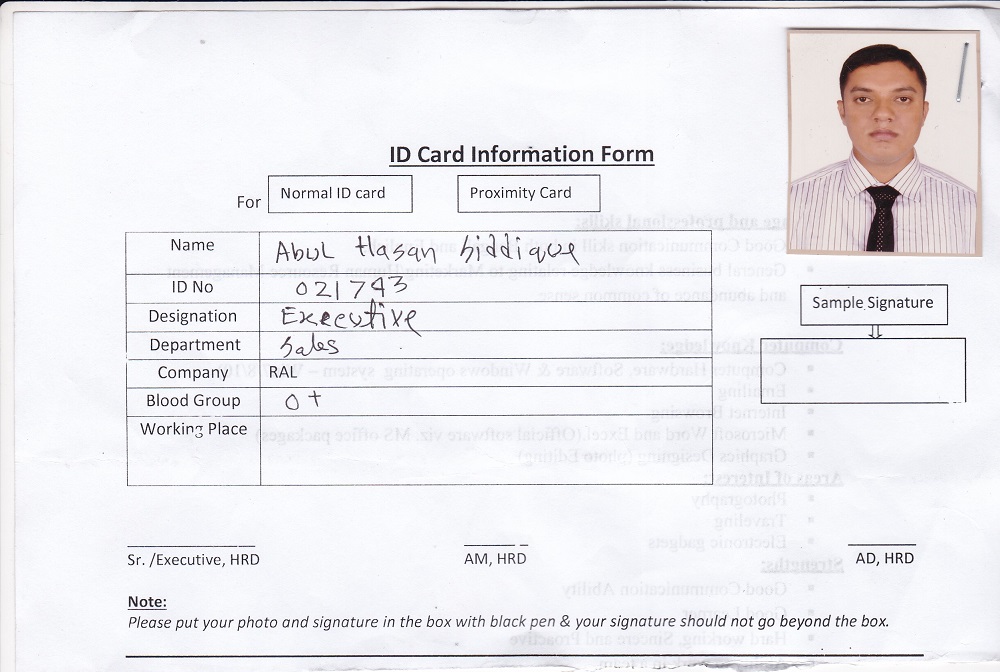 ID Card Information Form
For Normal ID card Proximity Card
Name Abul Hasan Siddique
ID No 021743
Designation Executive
Department Sales
Company RAL
Blood Group O+
Working Place
Sample Signature
Sr. /Executive, HRD AM, HRD AD, HRD
Note:
Please put your photo and signature in the box with black pen & your signature should not go beyond the box.